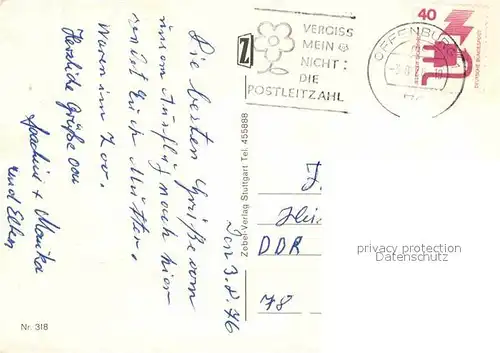 Die besten Grüße vom
unsem Ausflug nach hier
sendet Euch Mutter.
Waren im Zoo.
Herzliche Grüße von
Joachim + Monika
und Eltern
Den 3.8.76
Nr. 318
Zobel-Verlag Stuttgart Tel. 455888
Z
VERGISS
MEIN
NICHT:
DIE
POSTLEITZAHL
OFFENBURG
40
DEUTSCHE BUNDESPOST
J.
Hei
DDR
78
privacy protection
AnsichtskartenVersand.com